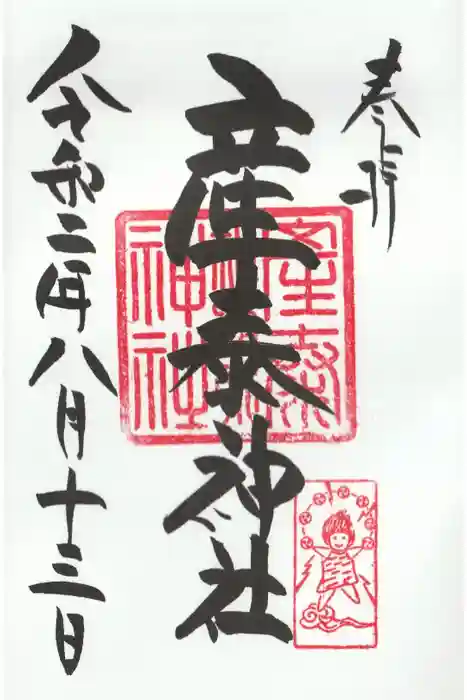 奉拝
産泰神社
産泰神社
令和二年八月十三日